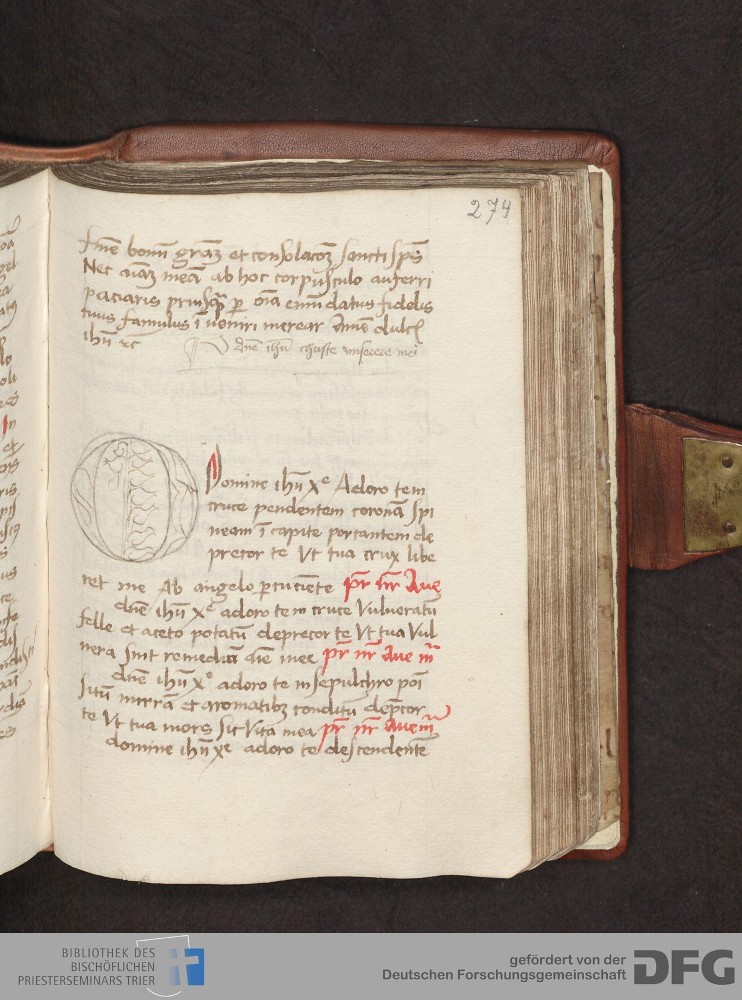 274
finē bonū grām et consolacōȝ sancti spūs
Nec aīaȝ meā ab hoc corpusculo auferri
paciaris priusqȝ per oīa eiusdatus fidelis
tuus famulus inveniri merear Amē dulcis
ihū xc
dn̄e ihū christe miserere mei
Domine ihū xe Adoro te in
cruce pendentem coronā spi
neam ī capite portantem de
precor te Vt tua crux libe
ret me Ab angelo pcuciēte pr̄ nr̄ Aue
dn̄e ihū xe adoro te in cruce Vulneratū
felle et aceto potatū deprecor te Vt tua Vul
nera sint remediū aīe mee pr̄ nr̄ aue m̄
dn̄e ihū xe adoro te in sepulchro poī
situ mirrā et aromatibȝ conditū dep̄cor
te Vt tua mors sit Vita mea pr̄ nr̄ aue m̄
domine ihū xe adoro te descendentē
BIBLIOTHEK DES
BISCHÖFLICHEN
PRIESTERSEMINARS TRIER
gefördert von der
Deutschen Forschungsgemeinschaft
DFG